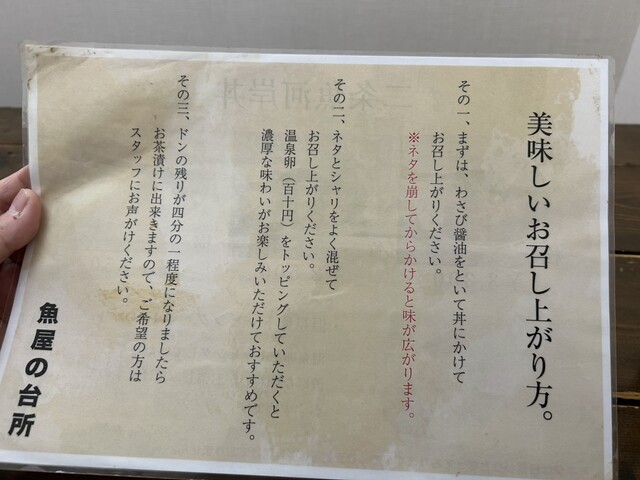 美味しいお召し上がり方。
その一、まずは、わさび醤油をといて丼にかけて
お召し上がりください。
※ネタを崩してからかけると味が広がります。
その二、ネタとシャリをよく混ぜて
お召し上がりください。
温泉卵（百十円）をトッピングしていただくと
濃厚な味わいがお楽しみいただけておすすめです。
その三、ドンの残りが四分の一程度になりましたら
お茶漬けに出来きますので、ご希望の方は
スタッフにお声がけください。
魚屋の台所
二条魚河岸丼